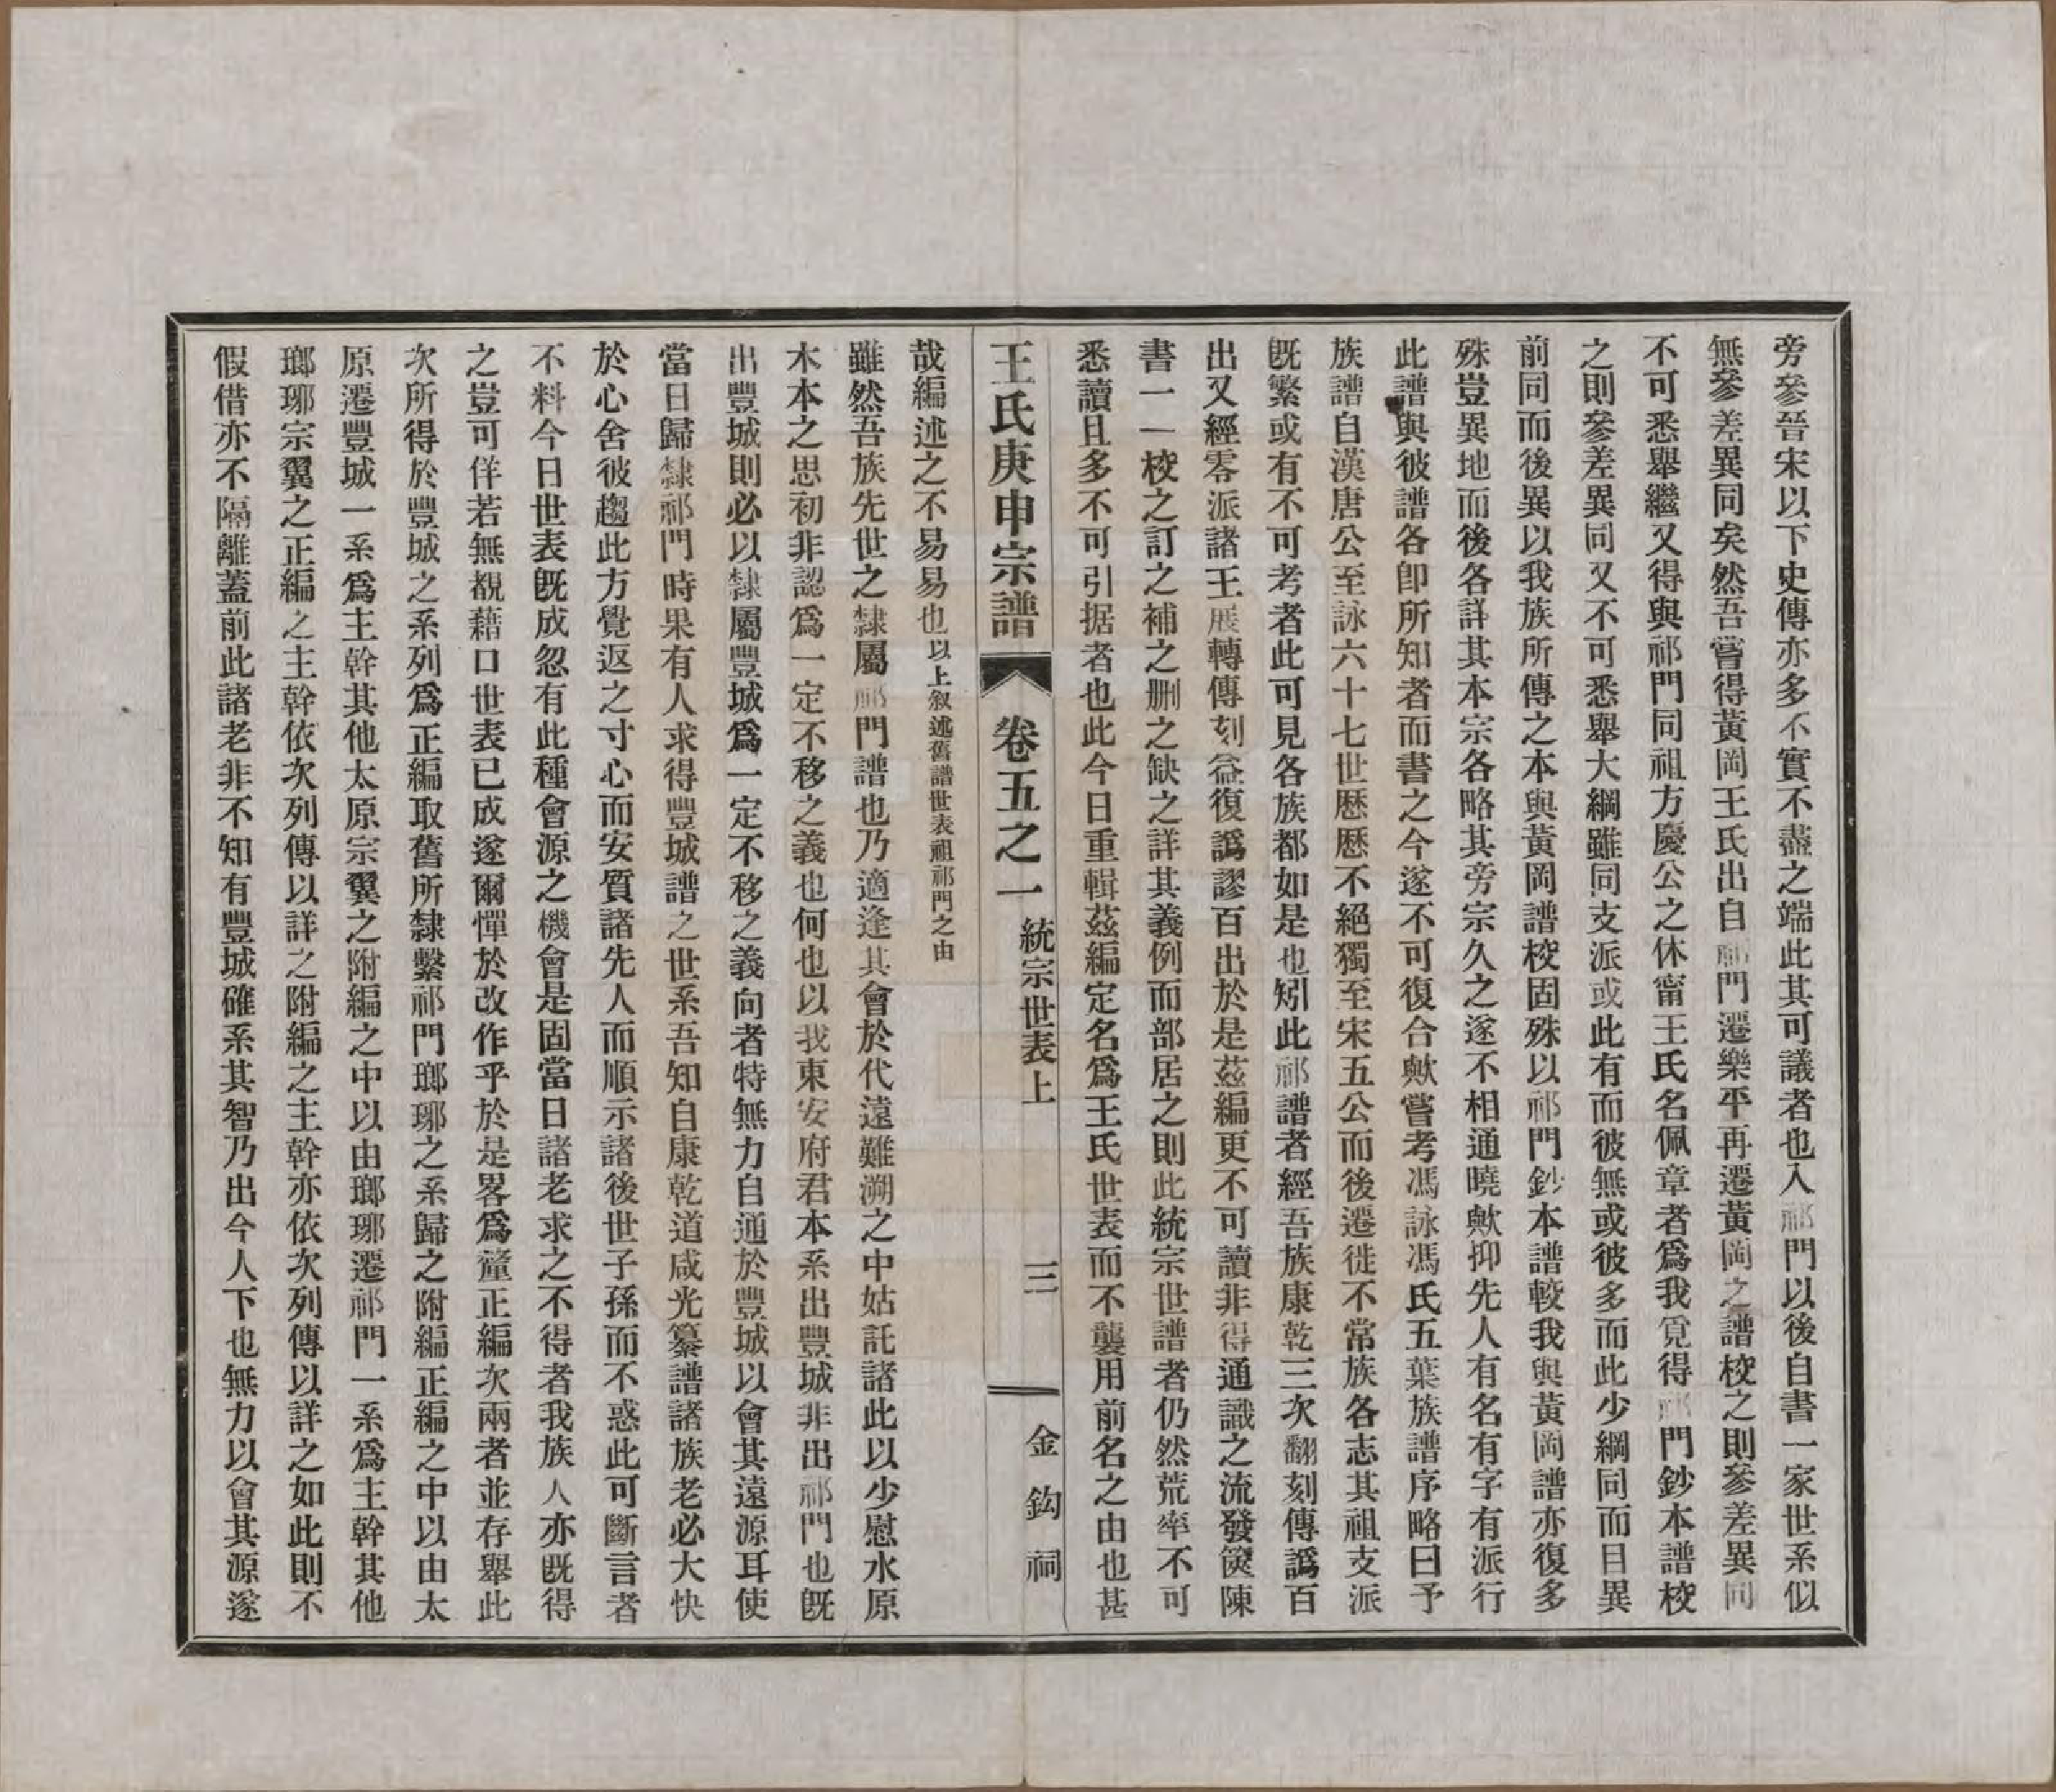 旁參晉宋以下史傳亦多不實不盡之端此其可議者也入祁門以後自書一家世系似
無參差異同矣然吾嘗得黃岡王氏出自祁門遷樂平再遷黃岡之譜校之則參差異同
不可悉舉繼又得與祁門同祖方慶公之休甯王氏名佩章者爲我覓得祁門鈔本譜校
之則參差異同又不可悉舉大綱雖同支派或此有而彼無或彼多而此少綱同而目異
前同而後異以我族所傳之本與黃岡譜校固殊以祁門鈔本譜較我與黃岡譜亦復多
殊豈異地而後各詳其本宗各略其旁宗久之遂不相通曉歟抑先人有名有字有派行
此譜與彼譜各卽所知者而書之今遂不可復合歟嘗考馮詠馮氏五葉族譜序略曰予
族譜自漢唐公至詠六十七世歷歷不絕獨至宋五公而後遷徙不常族各志其祖支派
旣繁或有不可考者此可見各族都如是也矧此祁譜者經吾族康乾三次翻刻傳譌百
出又經零派諸王展轉傳刻益復譌謬百出於是茲編更不可讀非得通識之流發篋陳
書一一校之訂之補之删之缺之詳其義例而部居之則此統宗世譜者仍然荒率不可
悉讀且多不可引据者也此今日重輯茲編定名爲王氏世表而不襲用前名之由也甚
王氏庚申宗譜 卷五之一 統宗世表上 三 金鈎祠
哉編述之不易易也以上叙述舊譜世表祖祁門之由
雖然吾族先世之隸屬祁門譜也乃適逢其會於代遠難溯之中姑託諸此以少慰水原
木本之思初非認爲一定不移之義也何也以我東安府君本系出豐城非出祁門也旣
出豐城則必以隸屬豐城爲一定不移之義向者特無力自通於豐城以會其遠源耳使
當日歸隸祁門時果有人求得豐城譜之世系吾知自康乾道咸光纂譜諸族老必大快
於心舍彼趨此方覺返之寸心而安質諸先人而順示諸後世子孫而不惑此可斷言者
不料今日世表旣成忽有此種會源之機會是固當日諸老求之不得者我族人亦旣得
之豈可佯若無覩藉口世表已成遂爾憚於改作乎於是畧爲釐正編次兩者並存舉此
次所得於豐城之系列爲正編取舊所隸繫祁門瑯琊之系歸之附編正編之中以由太
原遷豐城一系爲主幹其他太原宗翼之附編之中以由瑯琊遷祁門一系爲主幹其他
瑯琊宗翼之正編之主幹依次列傳以詳之附編之主幹亦依次列傳以詳之如此則不
假借亦不隔離蓋前此諸老非不知有豐城確系其智乃出今人下也無力以會其源遂